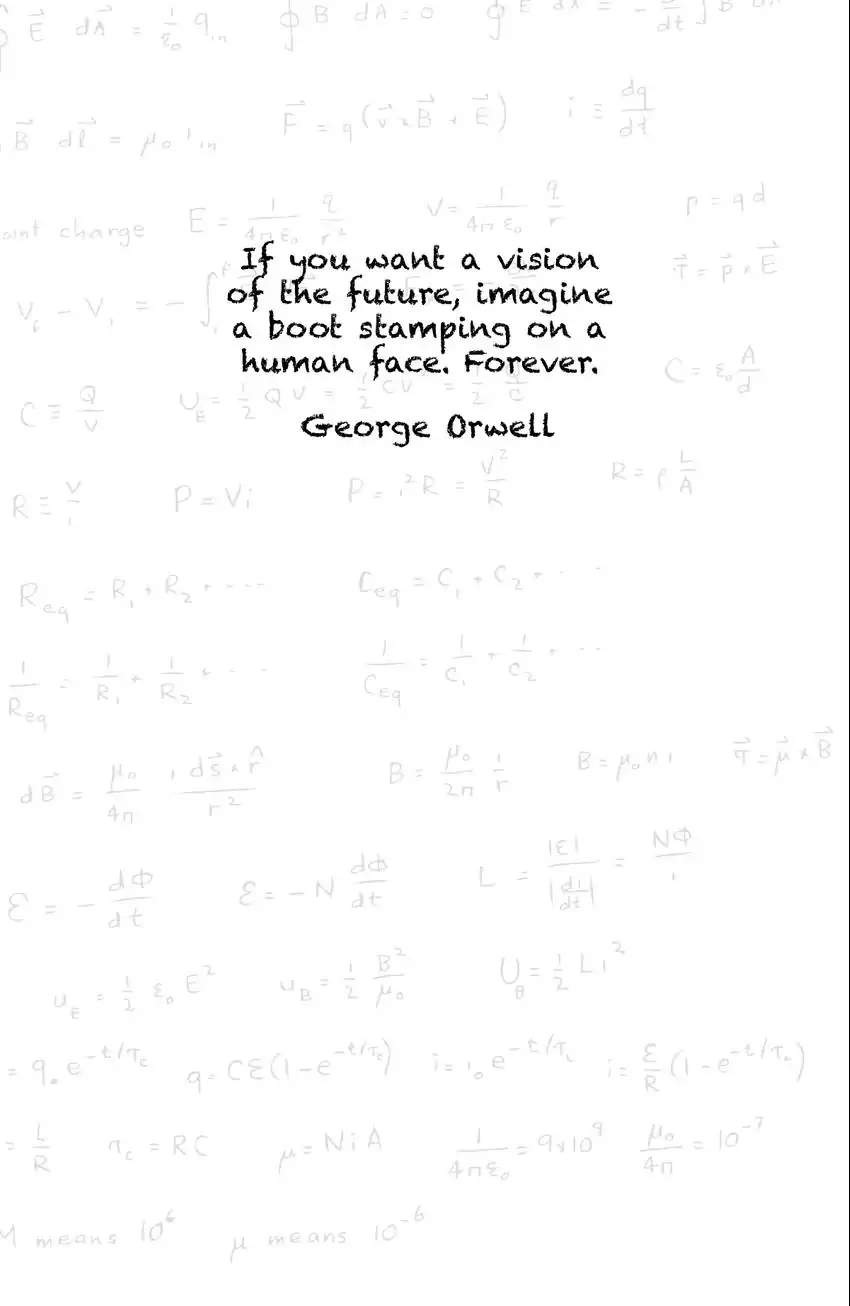 E⃗ dA⃗ = 1/ε₀ qᵢₙ ∮ B dA = 0 ∮ E dA = - d/dt ∫ B dA
B⃗ dl⃗ = μ₀ iᵢₙ F⃗ = q(v⃗ × B⃗ + E⃗) i ≡ dq/dt
point charge E = 1/4πε₀ q/r² V = 1/4πε₀ q/r p = qd
If you want a vision
of the future, imagine
a boot stamping on a
human face. Forever.
George Orwell
V_f - V_i = - ∫ τ⃗ = p⃗ × E⃗
C ≡ Q/V U_E = 1/2 QV = 1/2 CV² = 1/2 C = ε₀ A/d
R ≡ V/i P = Vi P = i²R = V²/R R = ρ L/A
R_eq = R₁ + R₂ + ... C_eq = C₁ + C₂ + ...
1/R_eq = 1/R₁ + 1/R₂ + ... 1/C_eq = 1/C₁ + 1/C₂ + ...
dB⃗ = μ₀/4π i ds⃗ × r̂/r² B = μ₀/2π i/r B = μ₀ni τ⃗ = μ⃗ × B⃗
ℰ = - dΦ/dt ℰ = - N dΦ/dt L = |ℰ|/|di/dt| = NΦ/i
u_E = 1/2 ε₀ E² u_B = 1/2 B²/μ₀ U_B = 1/2 Li²
= q₀ e^(-t/τ_c) q = Cℰ(1 - e^(-t/τ_c)) i = i₀ e^(-t/τ_L) i = ℰ/R (1 - e^(-t/τ_L))
= L/R τ_c = RC μ = NiA 1/4πε₀ = 9×10⁹ μ₀/4π = 10⁻⁷
M means 10⁶ μ means 10⁻⁶